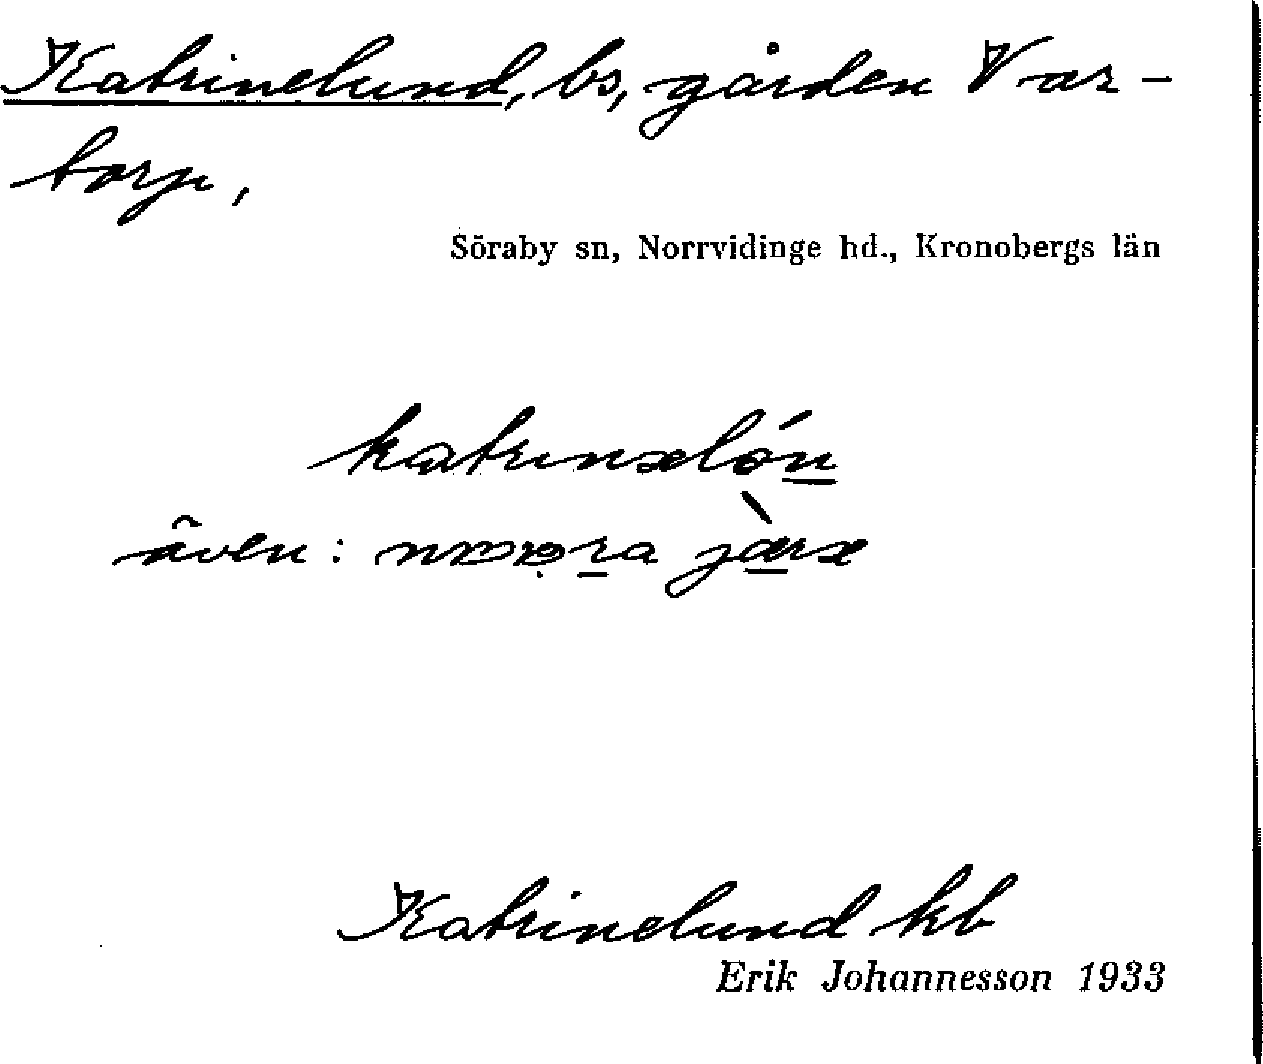 Katrinelund, bs, gården Var-
torp,
Söraby sn, Norrvidinge hd., Kronobergs län
katrinəlón
även:
Katrinelund kb
Erik Johannesson 1933